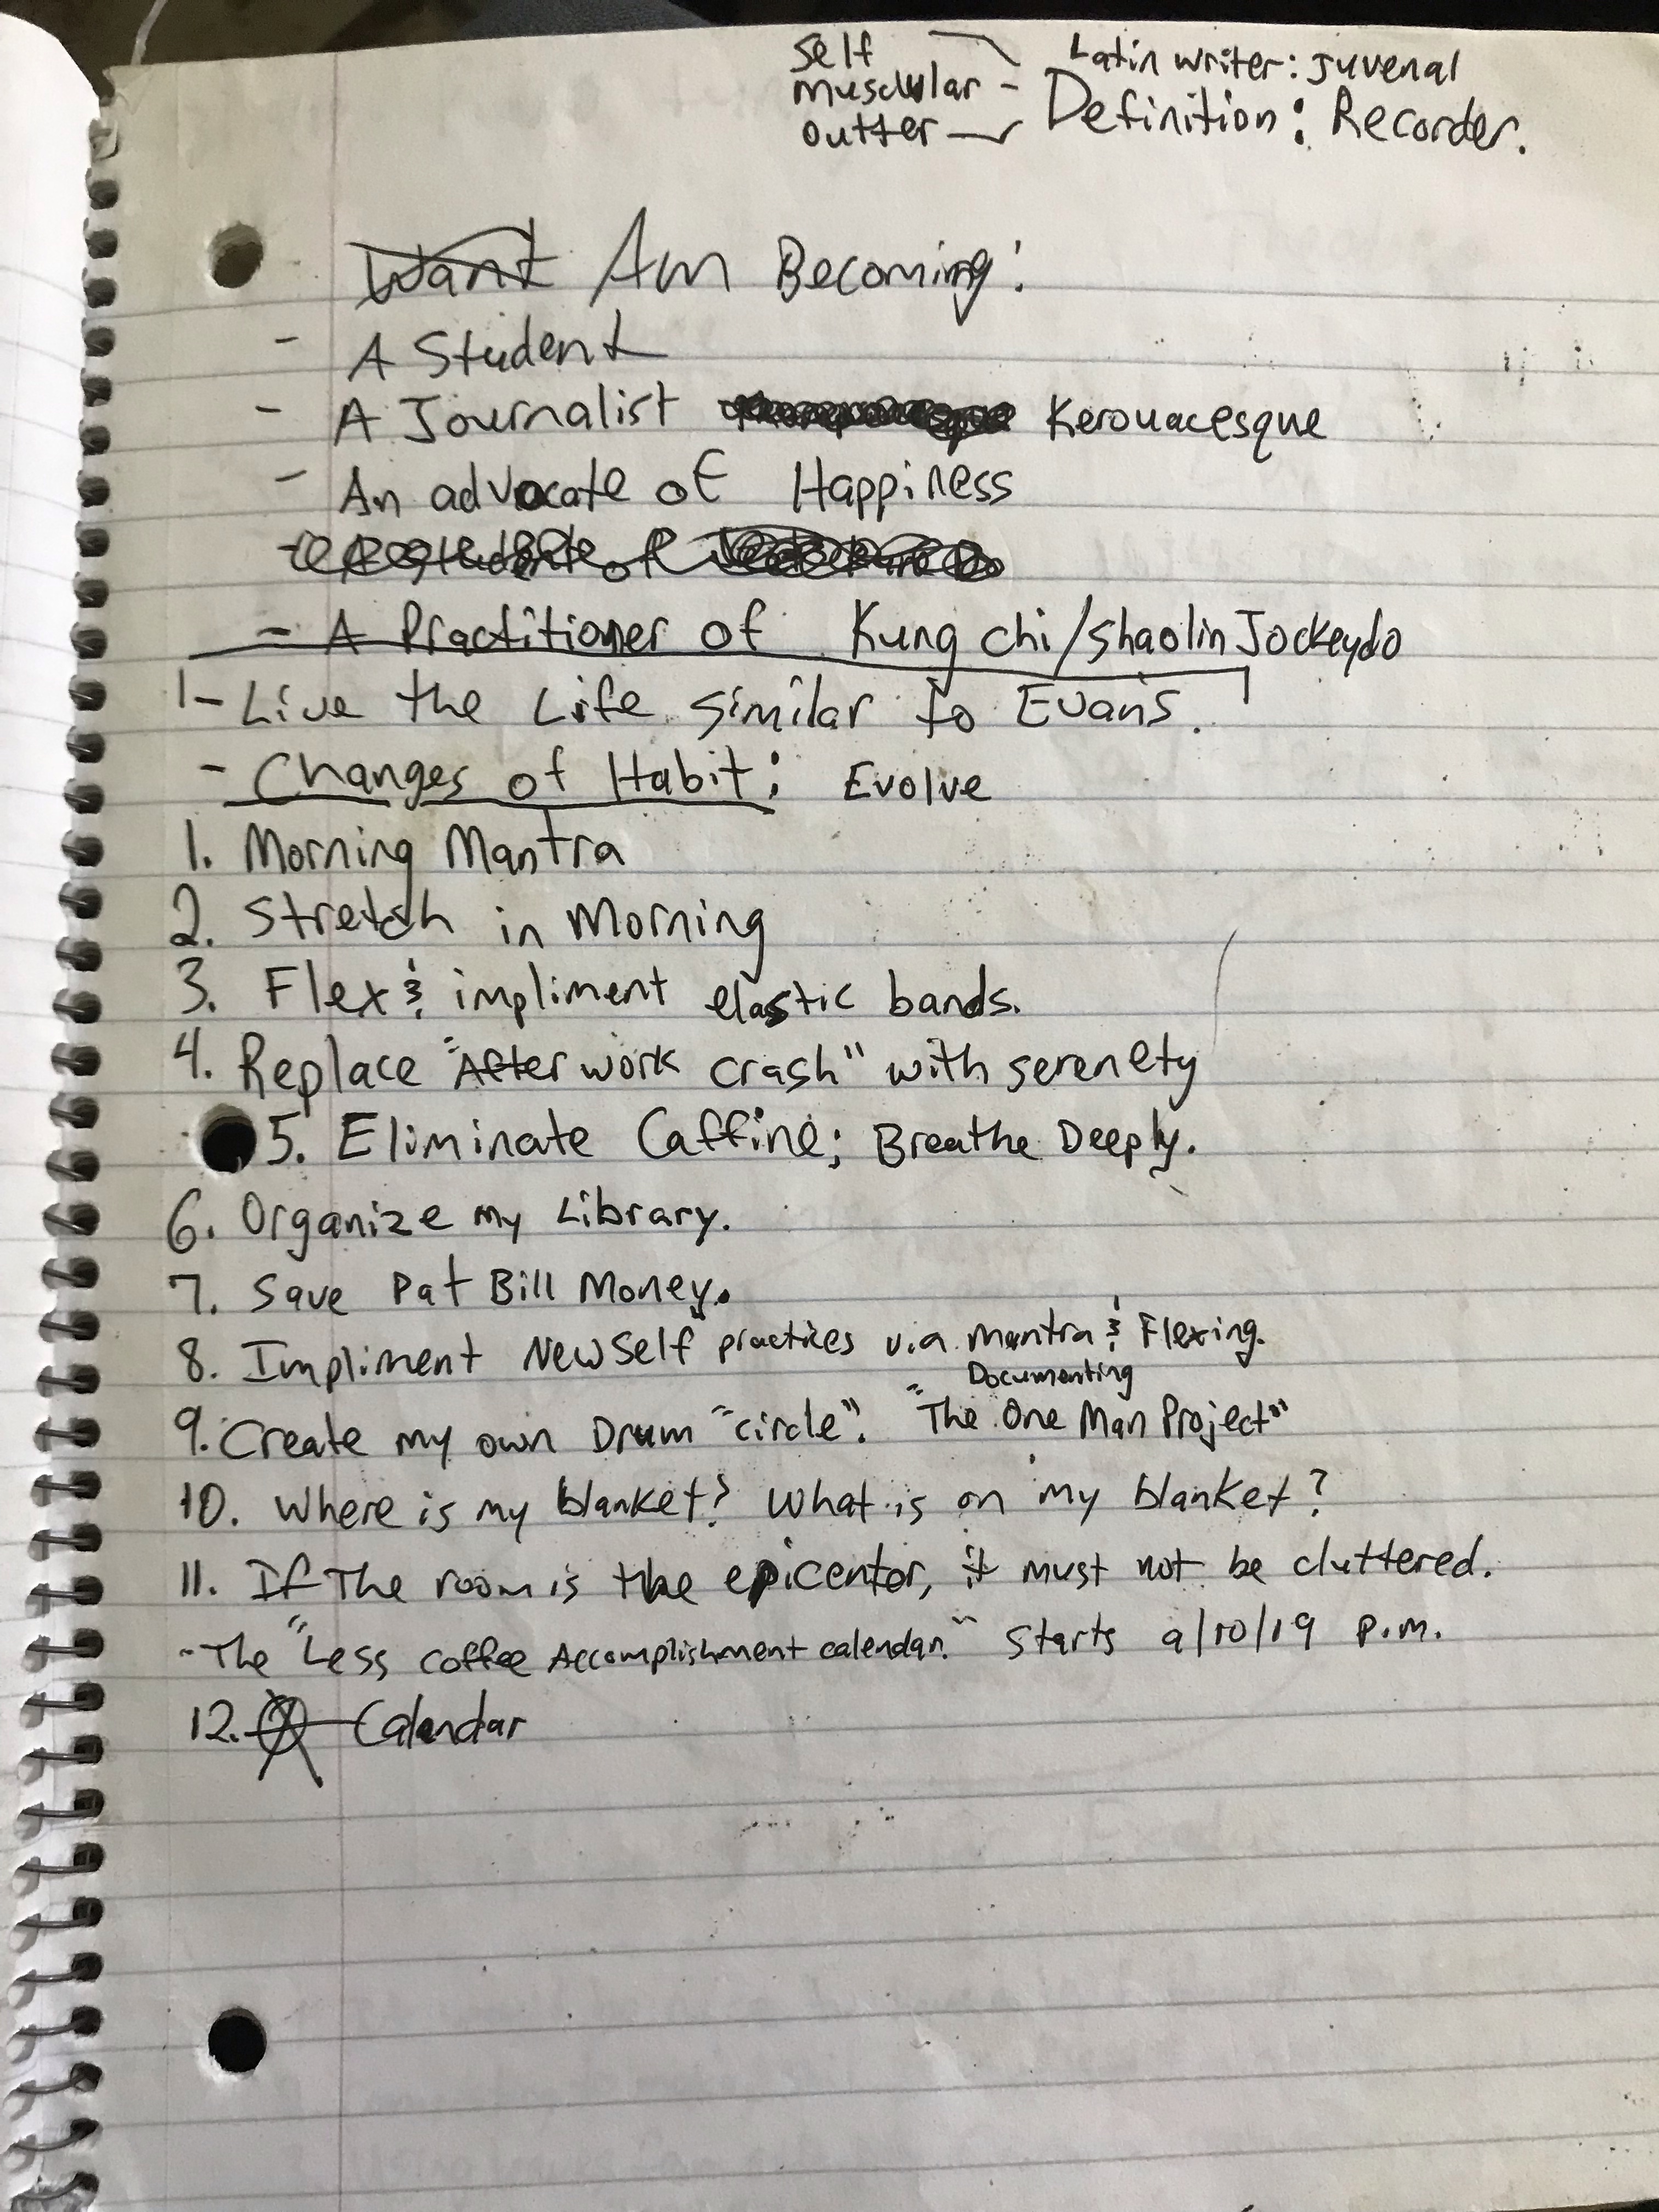 Self
Muscular
Outter
Latin writer: Juvenal
Definition: Recorder.
Want Am Becoming:
- A Student
- A Journalist Kerouacesque
- An advocate of Happiness
- A Practitioner of Kung chi/shaolin Jockeydo
- Live the Life similar to Evans.
- Changes of Habit: Evolve
1. Morning Mantra
2. Stretch in Morning
3. Flex & impliment elastic bands.
4. Replace "After work crash" with serenety
5. Eliminate Caffine; Breathe Deeply.
6. Organize my Library.
7. Save Pat Bill Money.
8. Impliment New Self practices via Mantra & Flexing.
Documenting
9. Create my own Drum "circle". "The One Man Project"
10. Where is my blanket? What is on my blanket?
11. If The room is the epicenter, it must not be cluttered.
- The "Less coffee Accomplishment calendar." Starts 9/10/19 p.m.
12. A Calendar